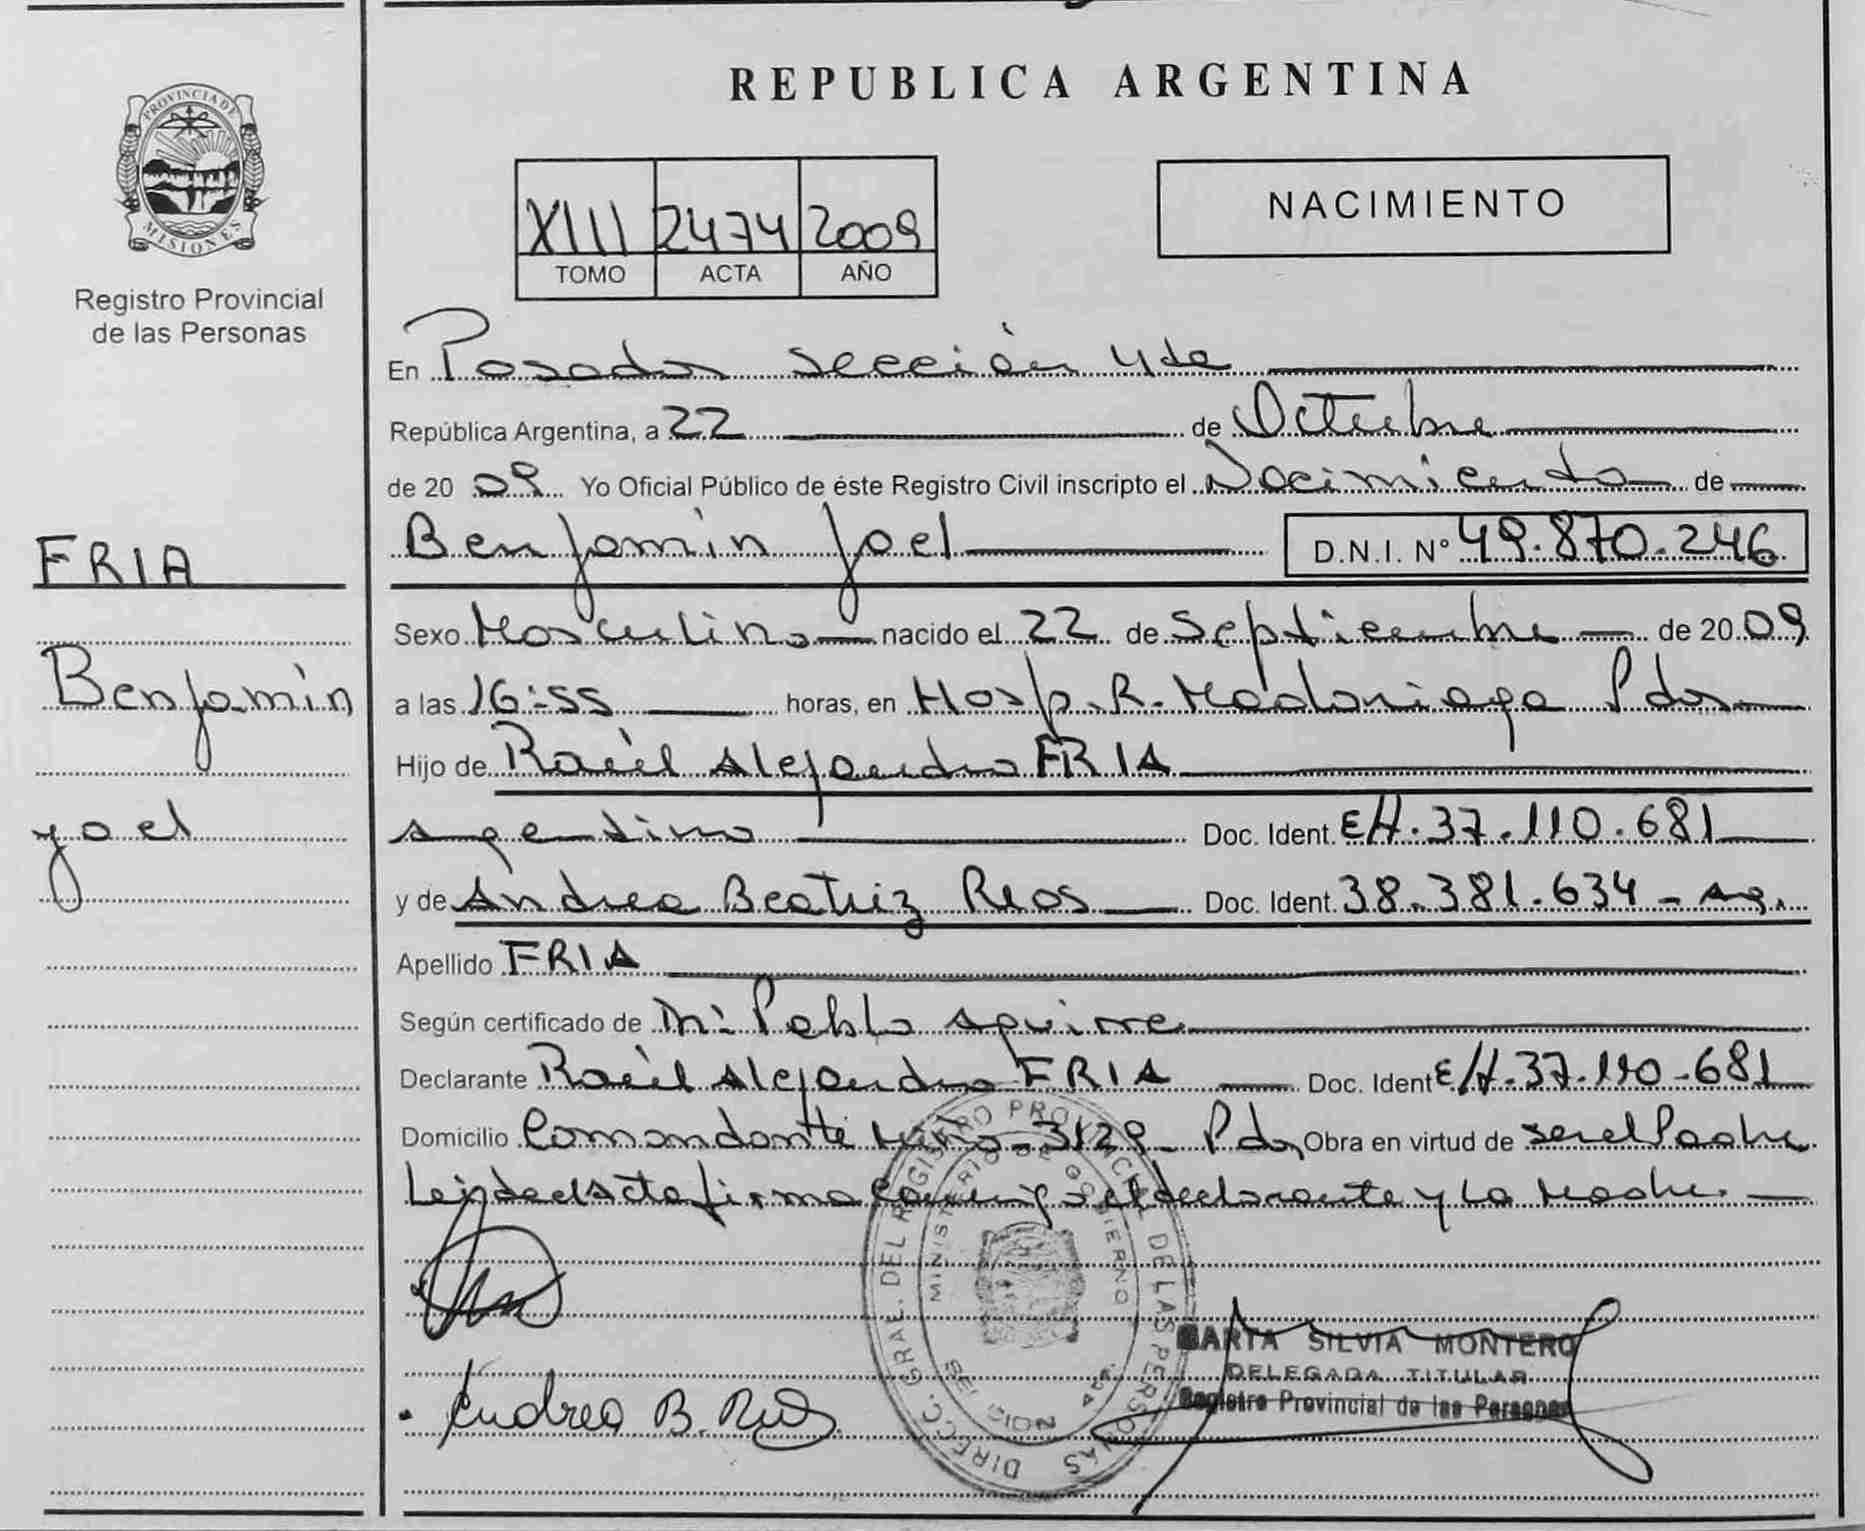 PROVINCIA DE
MISIONES
Registro Provincial
de las Personas
FRIA
Benjamin
Joel
REPUBLICA ARGENTINA
XIII 2474 2009
TOMO ACTA AÑO
NACIMIENTO
En Posadas sección 4ta
República Argentina, a 22 de Octubre
de 20 09 Yo Oficial Público de éste Registro Civil inscripto el Nacimiento de
Benjamin Joel D.N.I. Nº 49.870.246
Sexo Masculino nacido el 22 de Septiembre de 20 09
a las 16:55 horas, en Hosp. R. Madariaga Pdas
Hijo de Raúl Alejandro FRIA
argentino Doc. Ident. 37.110.681
y de Andrea Beatriz Rios Doc. Ident. 38.381.634 - arg.
Apellido FRIA
Según certificado de Pablo Aguirre
Declarante Raúl Alejandro FRIA Doc. Ident 37.110.681
Domicilio Comandante Miño 3129 - Pdas Obra en virtud de ser el Padre
Leida el Acta firma conmigo el declarante y la Madre.
DIRECC. GRAL. DEL REGISTRO PROVINCIAL DE LAS PERSONAS
MINISTERIO DE GOBIERNO
Andrea B. Rios
MARTA SILVIA MONTERO
DELEGADA TITULAR
Registro Provincial de las Personas